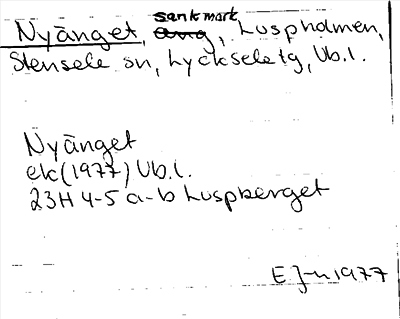 sankmark
Nyänget, äng, Luspholmen,
Stensele sn, Lycksele tg, Vb.l.
Nyänget
ek (1977) Vb.l.
23H 4-5 a-b Luspberget
EJ-n 1977